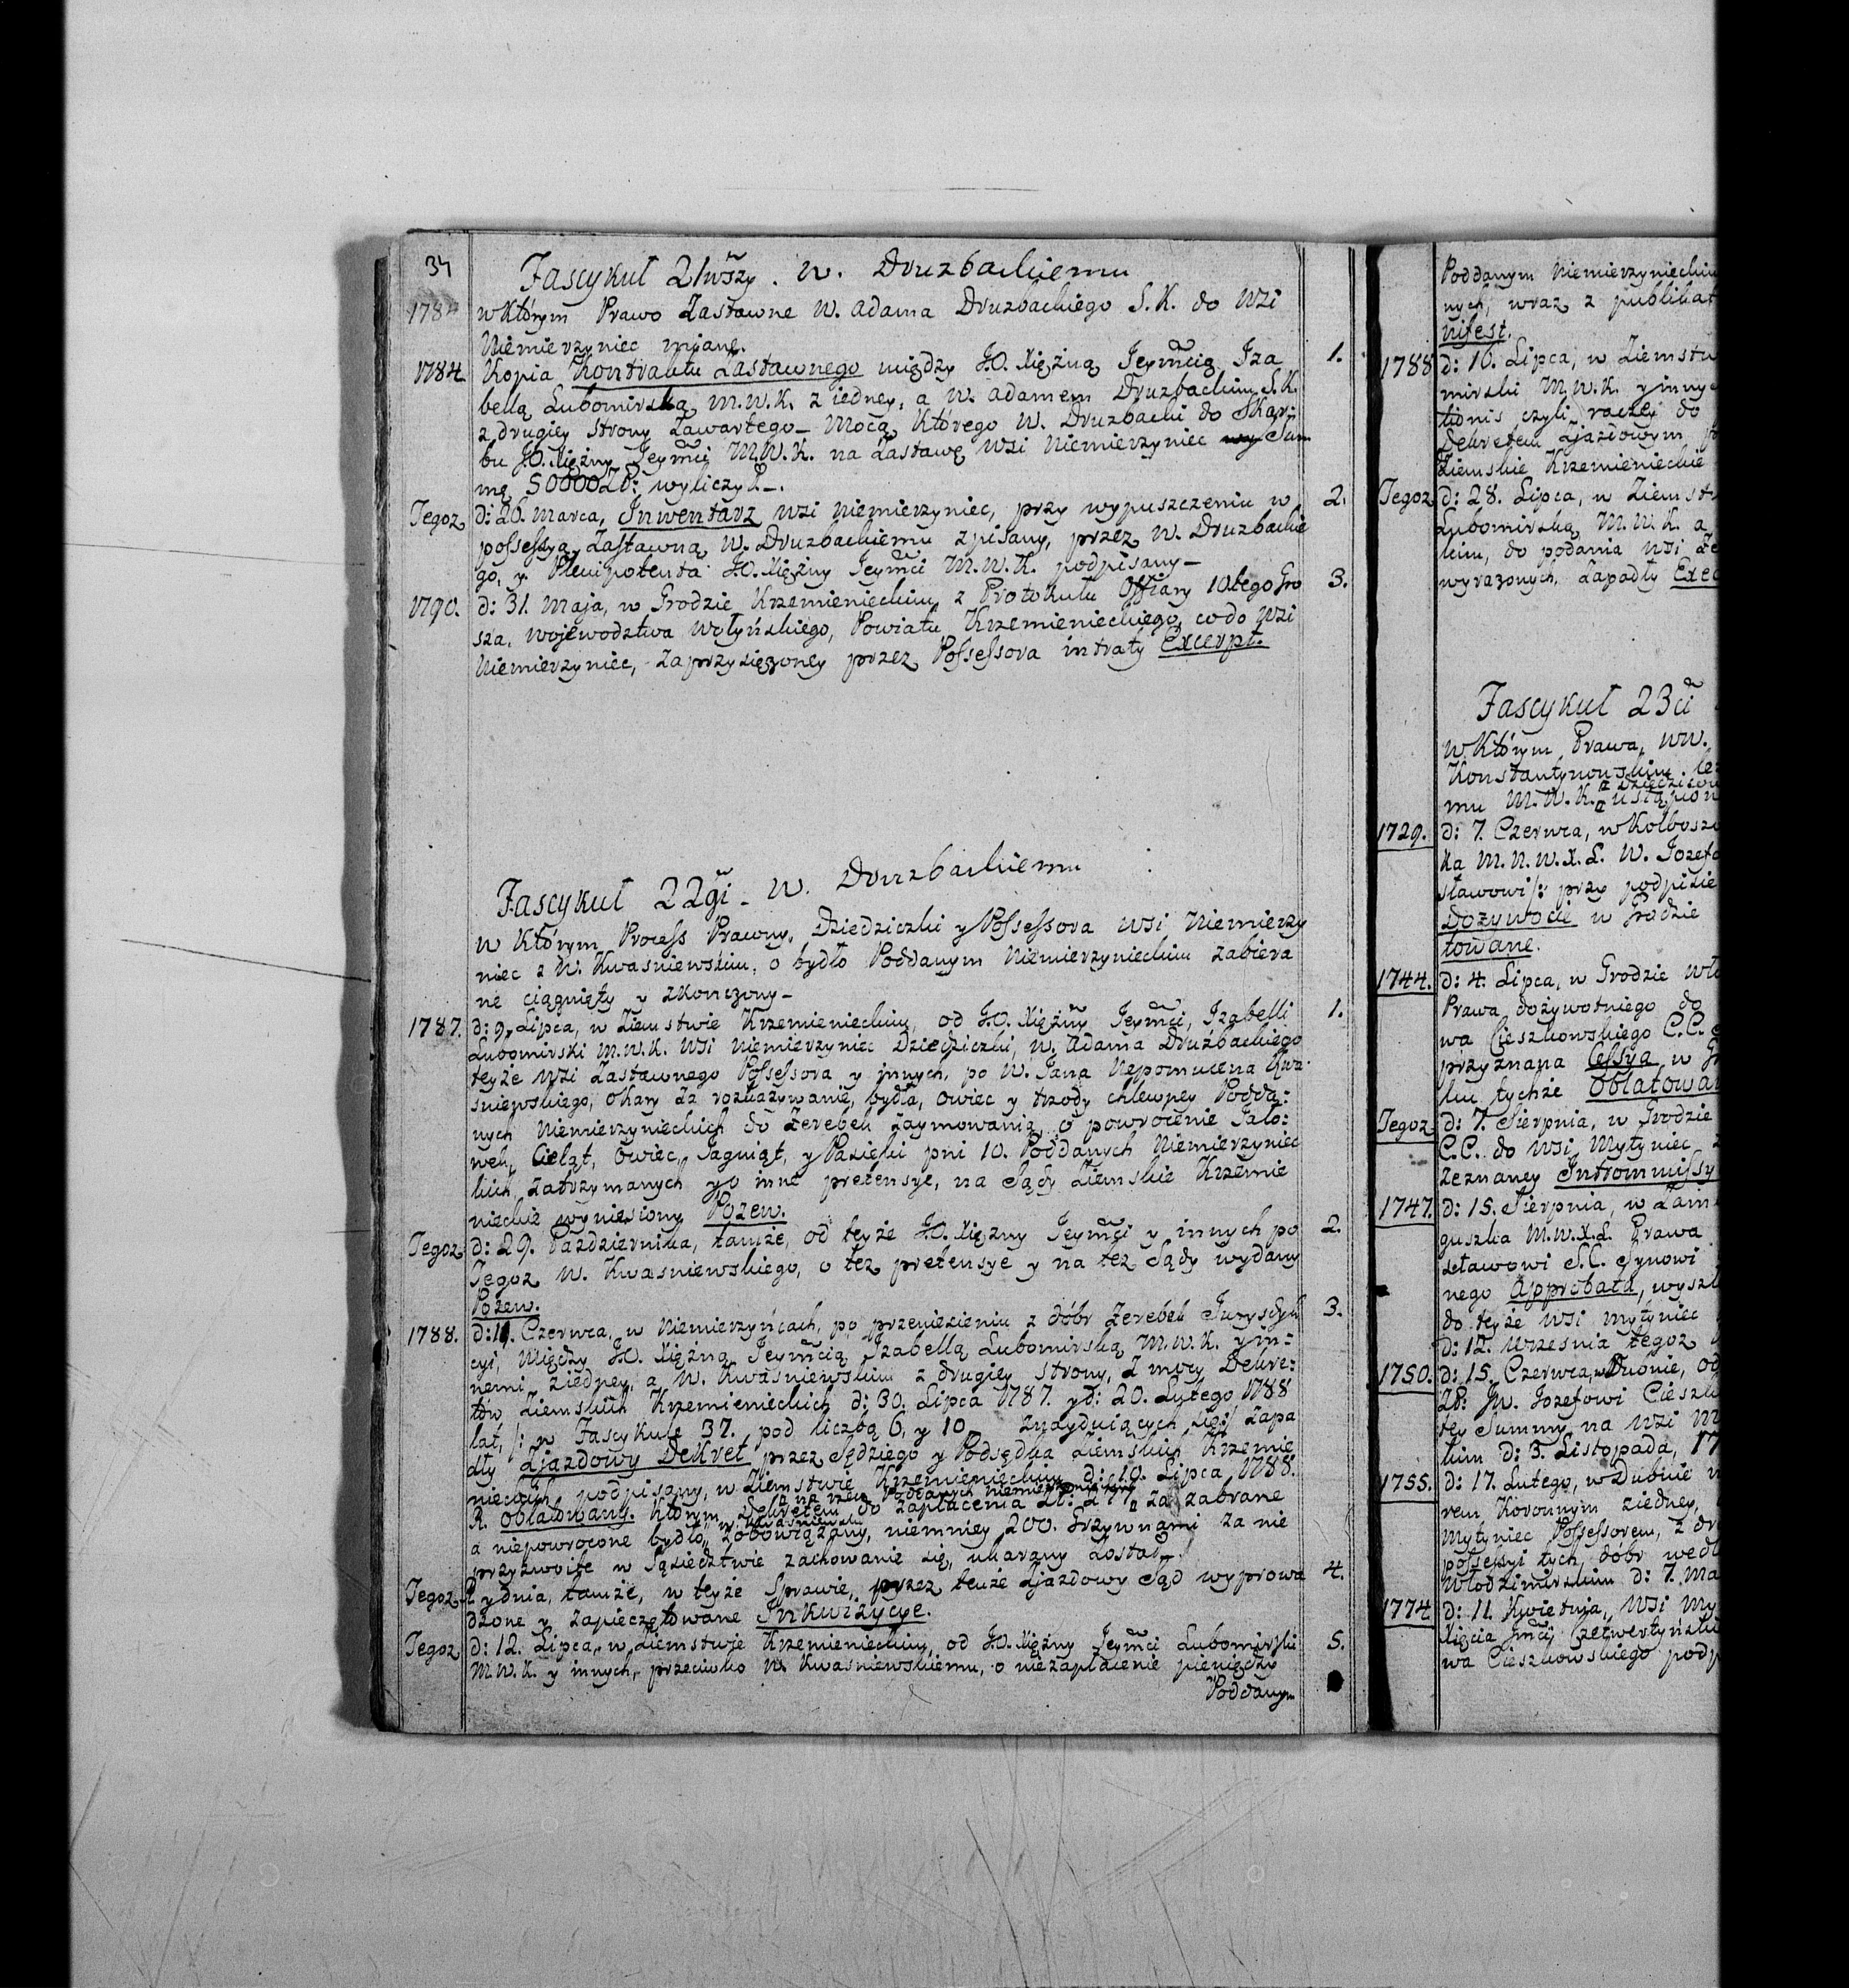 34
Fascykuł 21wszy. W. Druzbackiemu
1784 w którym Prawo Zastawne W. Adama Druzbackiego S.K. do Wsi
Niemierzyniec miane.
1784. Kopia Kontraktu Zastawnego między J.O. Xiężną Jeymcią Iza 1.
bellą Lubomirską M.W.K. z iedney, a W. Adamem Druzbackim S.K.
z drugiey strony Zawartego_ Mocą którego W. Druzbacki do Skar:
bu J.O. Xiężny Jeymci M.W.K. na Zastawę wsi Niemierzyniec Sum
mę 50000 Zł: wyliczył_.
Tegoz d: 26. Marca, Inwentarz wsi Niemierzyniec, przy wypuszczeniu w 2.
possessyą Zastawną W. Druzbackiemu zpisany, przez W. Druzbackie
go, y Plenipotenta J.O. Xiężny Jeymci M.W.K. podpisany_
1790. d: 31. Maja, w Grodzie Krzemienieckim z Protokułu Offiary 10tego Gro 3.
sza, Województwa Wołyńskiego, Powiatu Krzemienieckiego, co do wsi
Niemierzyniec, zaprzysiężoney przez Possessora intraty Excerpt.
Fascykuł 22gi _ W. Druzbackiemu
w Którym Process Prawny, Dziedziczki y Possessora wsi Niemierzy
niec z W. Kwasniewskim, o bydło Poddanym Niemierzynieckim zabiera
ne ciągnięty y zkonczony_
1787. d: 9. Lipca, w Ziemstwie Krzemienieckim, od J.O. Xiężny Jeymci, Izabelli 1.
Lubomirski M.W.K. wsi Niemierzyniec Dziedziczki, W. Adama Druzbackiego
teyże wsi Zastawnego Possessora y innych, po W. Jana Nepomucena Kwa
sniewskiego, o kary za rozkazywanie, bydła, owiec y trzody chlewney Podda:
nych Niemierzynieckich do Zerebek zaymowania, o powrócenie Jało:
wek, Cieląt, Owiec, Jagniąt, y Pasieki pni 10. Poddanych Niemierzyniec
kich zatrzymanych y o inne pretensye, na Sądy Ziemskie Krzemie
nieckie wyniesiony Pozew.
Tegoz d: 29. Pazdziernika, tamże, od teyże J.O. Xiężny Jeymci y innych po 2.
Tegoz W. Kwasniewskiego, o też pretensye y na też Sądy wydany
Pozew.
1788. d: 19. Czerwca, w Niemierzyńcach, po przeniesieniu z dóbr Zerebek Jurysdyk 3.
cyi, Między J.O. Xiężną Jeymcią Izabellą Lubomirską M.W.K. y in:
nemi ziedney, a W. Kwasniewskim z drugiey strony, Z mocy Dekre:
tów Ziemskich Krzemienieckich d: 30. Lipca 1787. y d: 20. Lutego 1788
lat, /: w Fascykule 37. pod liczbą 6, y 10 _ znayduiących się :/ zapa
dły Zjazdowy Dekret przez Sędziego y Podsędka Ziemskich Krzemie
nieckich podpisany, w Ziemstwie Krzemienieckim d: 10. Lipca 1788.
na rzecz Poddanych Niemierzynieckich
R. oblatowany. Którym Dekretem do zapłacenia Zł: 277 za zabrane
W. Kwasniewski
a niepowrocone bydło, zobowiązany, niemniey 200. Grzywnami za nie
przyzwoite w Sąsiedztwie zachowanie się, ukarany został.
Tegoz R. y dnia, tamże, w teyże Sprawie, przez tenże Zjazdowy Sąd wyprowa 4.
dzone y zapieczętowane Inkwizycye.
Tegoz d: 12. Lipca, w Ziemstwie Krzemienieckim, od J.O. Xiężny Jeymci Lubomirski 5.
M.W.K. y innych, przeciwko W. Kwasniewskiemu, o niezapłacenie pieniędzy
Poddanym
Poddanym Niemierzynieckim
nych, wraz z publikat
nifest.
1788 d: 16. Lipca, w Ziemstw
mirski M.W.K. y innyc
tionis czyli raczey do
Dekretem Zjazdowym
Ziemskie Krzemienieckie
Tegoz d: 28. Lipca, w Ziemstw
Lubomirską M.W.K. a
kim, do podania wsi Ze
wyrazonych, zapadły Exec
Fascykuł 23ci
w Którym Prawa, WW.
Konstantynowskim le
Dziedzicow
mu M.W.K. ustąpion
1729. d: 7. Czerwca, w Kolbuszo
ka M.N.W.X.L. W. Jozefo
sławowi /: przy podpisie
dozywocie w Grodzie
towane.
1744. d: 4. Lipca, w Grodzie Wło
Prawa dożywotniego do
wa Cieszkowskiego C.C.
przyznana Cessya w Gr
ku tychże Oblatowan
Tegoz d: 7. Sierpnia, w Grodzie
C.C. do wsi Mytyniec
Zeznaney Intromissy
1747. d: 15. Sierpnia, w Zam
guszka M.W.X.L. Prawa
sławowi S.C. Synowi
nego Approbata, wyszł
do teyże wsi Mytyniec
d: 12. Wrzesnia tegoz
1750. d: 15. Czerwca, w Dubnie, od
Zł: Jw. Jozefowi Cieszk
tey Summy na wsi M
kim d: 3. Listopada, 17
1755. d: 17. Lutego, w Dubnie
rem Koronnym ziedney,
Mytyniec Possessorem, z dr
possessyi tych dóbr wedł
Włodzimirskim d: 7. Ma
1774 d: 11. Kwietnia, wsi My
Xięcia Jmci Czetwertyńsk
wa Cieszkowskiego podp